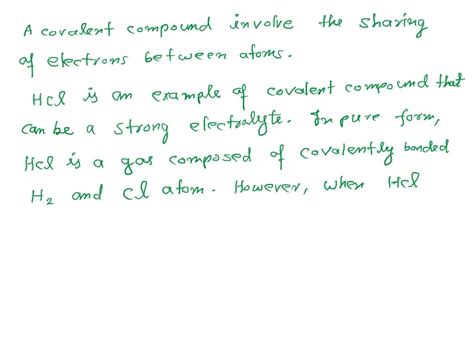 A covalent compound involve the sharing
of electrons between atoms.
HCl is an example of covalent compound that
can be a strong electralyte. In pure form,
HCl is a gas composed of covalently bonded
H2 and Cl atom. However, when HCl